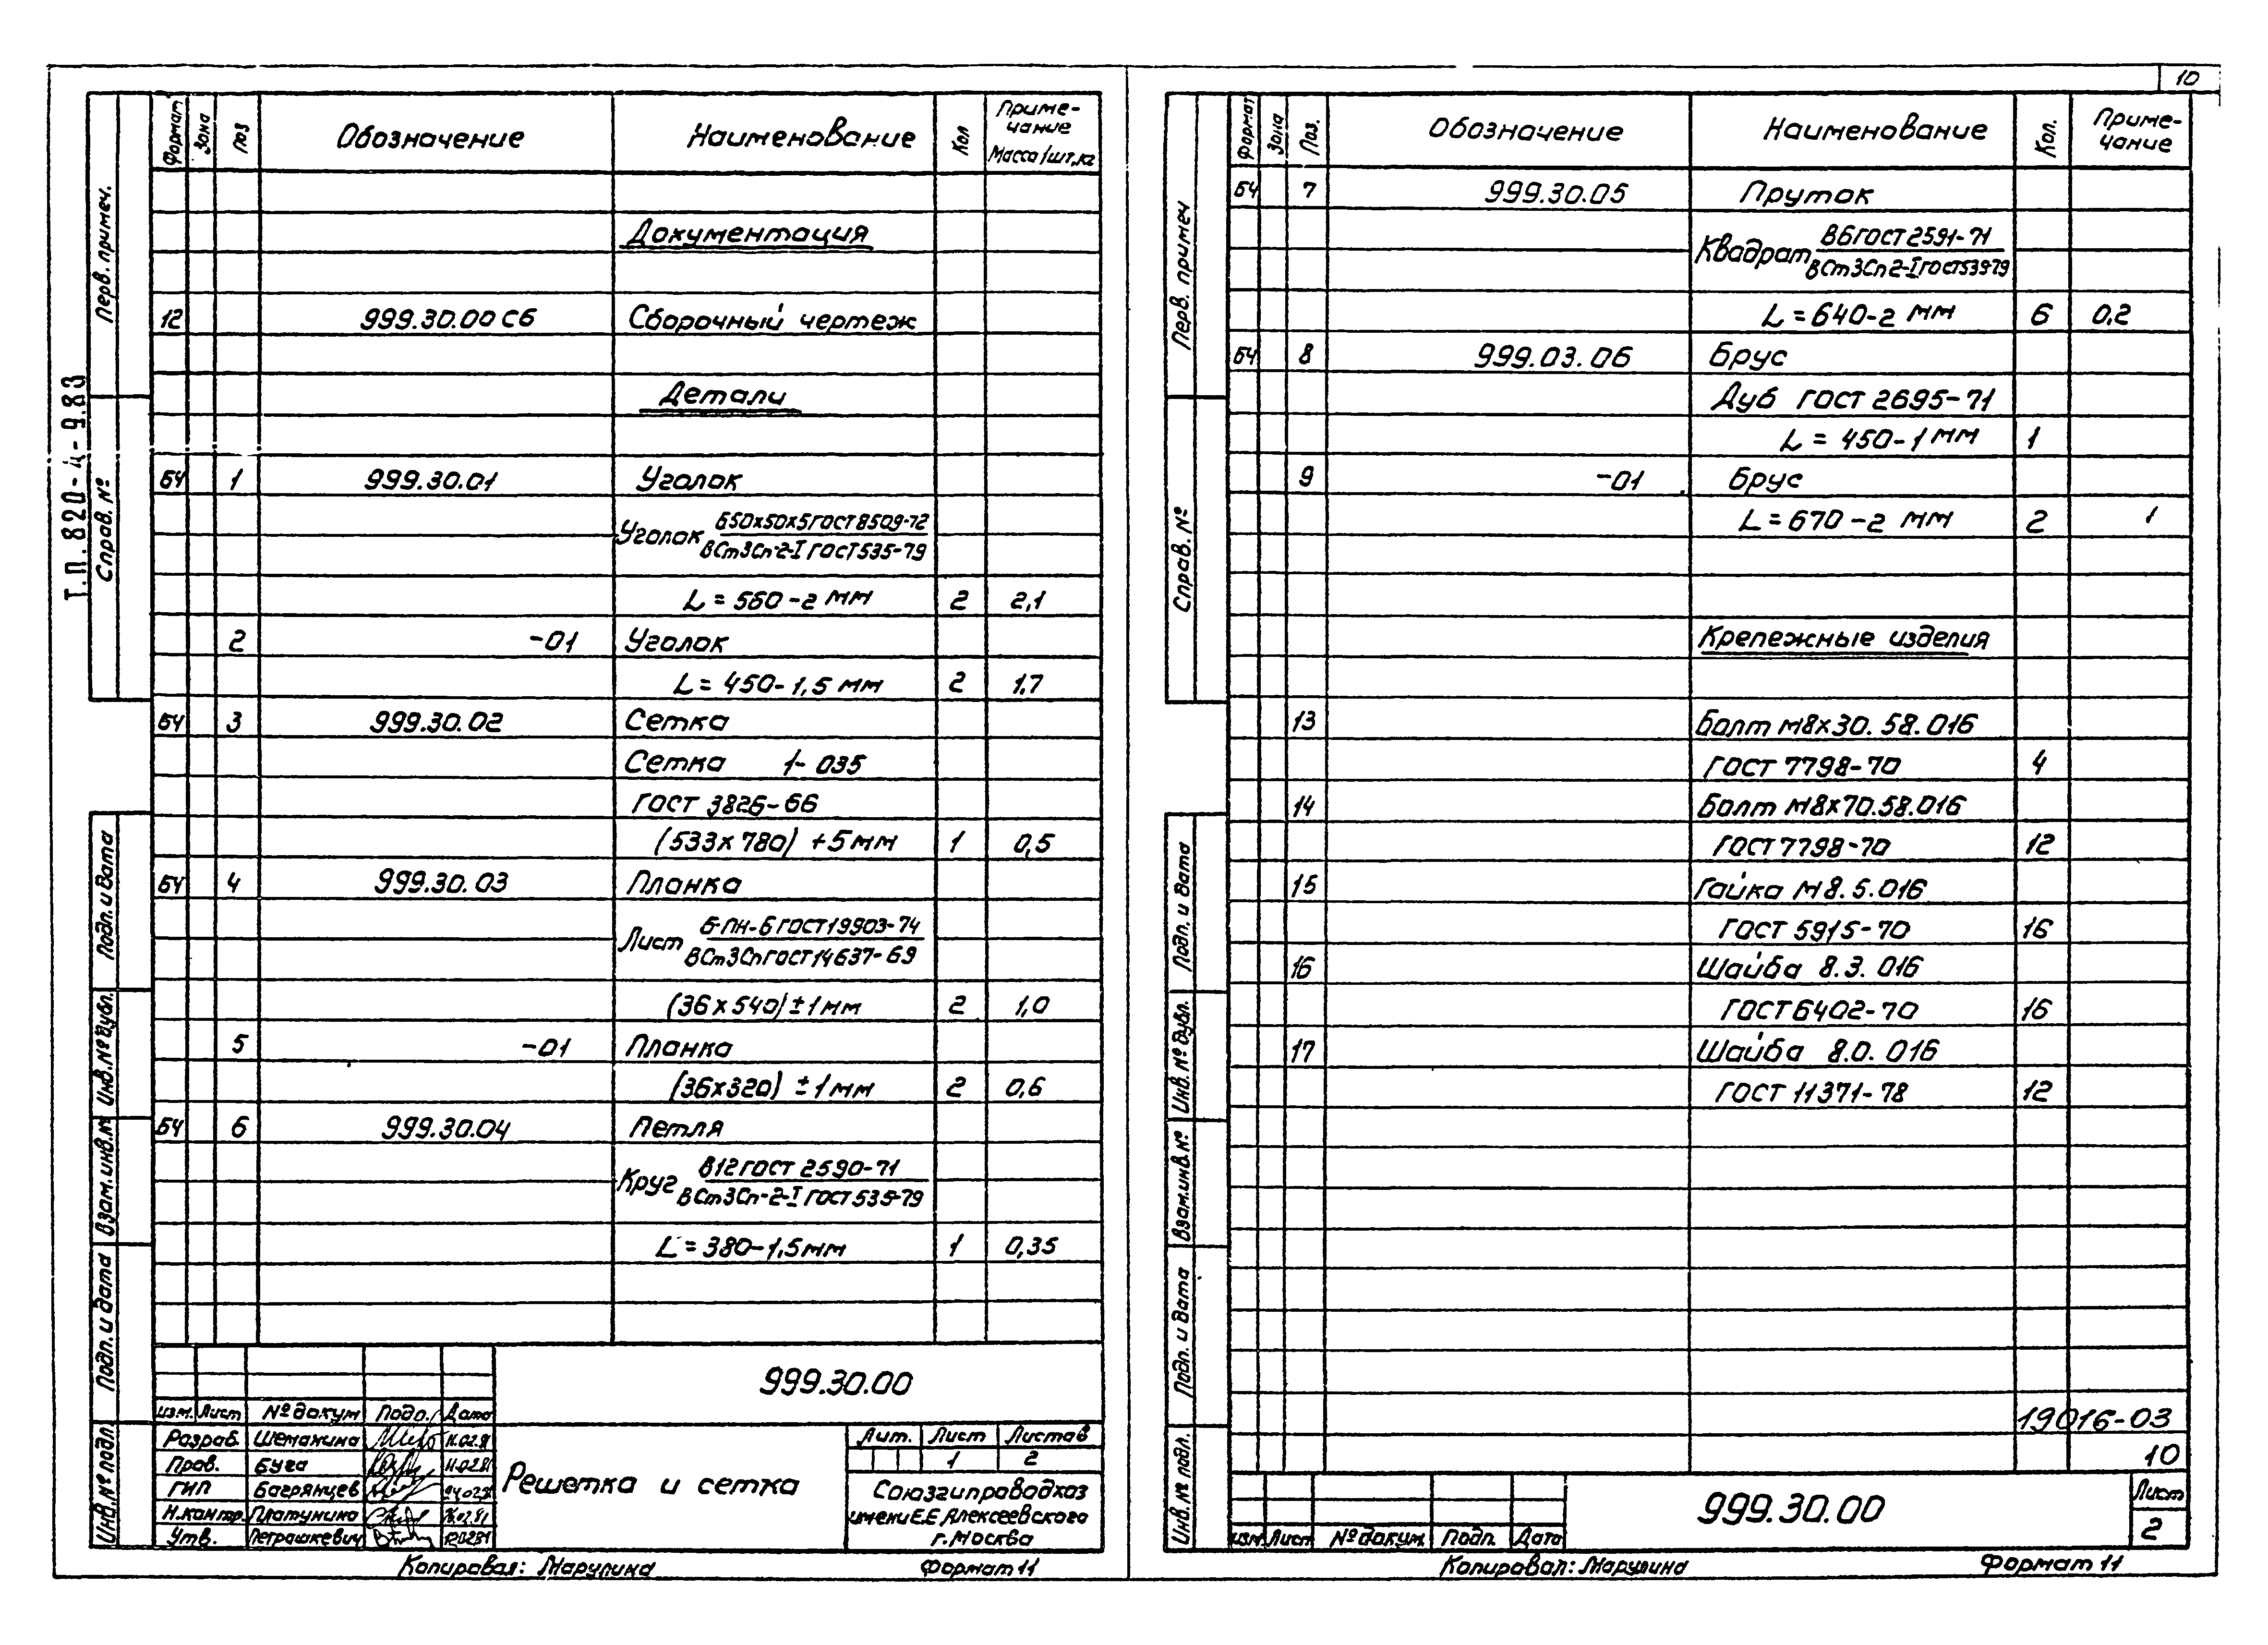 10
Т.П. 820-4-9.83
Перв. примеч.
Справ. №
Подп. и дата
Инв. № дубл.
Взам. инв. №
Подп. и дата
Инв. № подл.
Формат Зона Поз Обозначение Наименование Кол Приме-
чание
Масса/шт,кг
Документация
12 999.30.00 СБ Сборочный чертеж
Детали
БЧ 1 999.30.01 Уголок
Уголок Б50х50х5 ГОСТ 8509-72
ВСт3Сп-2-I ГОСТ 535-79
L = 560-2 мм 2 2,1
2 -01 Уголок
L = 450-1,5 мм 2 1.7
БЧ 3 999.30.02 Сетка
Сетка 1-035
ГОСТ 3826-66
(533х780) +5 мм 1 0,5
БЧ 4 999.30.03 Планка
Лист Б-ПН-6 ГОСТ 19903-74
ВСт3Сп ГОСТ 14637-69
(36х540) ±1 мм 2 1,0
5 -01 Планка
(36х320) ±1 мм 2 0,6
БЧ 6 999.30.04 Петля
Круг В12 ГОСТ 2590-71
ВСт3Сп-2-I ГОСТ 535-79
L = 380-1,5 мм 1 0,35
999.30.00
Изм. Лист № докум Подп. Дата
Разраб. Шеманина 11.02.81
Пров. Буга 11.02.81
ГИП Багрянцев
Н.контр. Платунина
Утв. Петрашкевич
Решетка и сетка
Лит. Лист Листов
1 2
Союзгипроводхоз
имени Е.Е. Алексеевского
г. Москва
Копировал: Марулина Формат 11
Перв. примеч
Справ. №
Подп. и дата
Инв. № дубл.
Взам. инв. №
Подп. и дата
Инв. № подл.
Формат Зона Поз. Обозначение Наименование Кол. Приме-
чание
БЧ 7 999.30.05 Пруток
Квадрат В6 ГОСТ 2591-71
ВСт3Сп2-I ГОСТ 535-79
L = 640-2 мм 6 0,2
БЧ 8 999.03.06 Брус
Дуб ГОСТ 2695-71
L = 450-1 мм 1
9 -01 Брус
L = 670-2 мм 2
Крепежные изделия
13 Болт М8х30.58.016
ГОСТ 7798-70 4
14 Болт М8х70.58.016
ГОСТ 7798-70 12
15 Гайка М8.5.016
ГОСТ 5915-70 16
16 Шайба 8.3.016
ГОСТ 6402-70 16
17 Шайба 8.0.016
ГОСТ 11371-78 12
19016-03
10
Изм. Лист № докум. Подп. Дата
999.30.00
Лист
2
Копировал: Марулина Формат 11